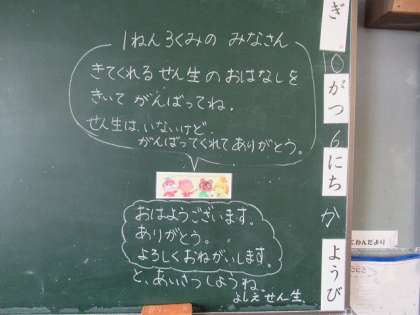 1ねん3くみの みなさん
きてくれる せん生の おはなしを
きいて がんばってね.
せん生は、いないけど.
がんばってくれて ありがとう。
おはようございます。
ありがとう。
よろしくおねがいします。
と、あいさつしようね。
よしえ せん生.
ぎ
10
がつ
6
にち
か
ようび